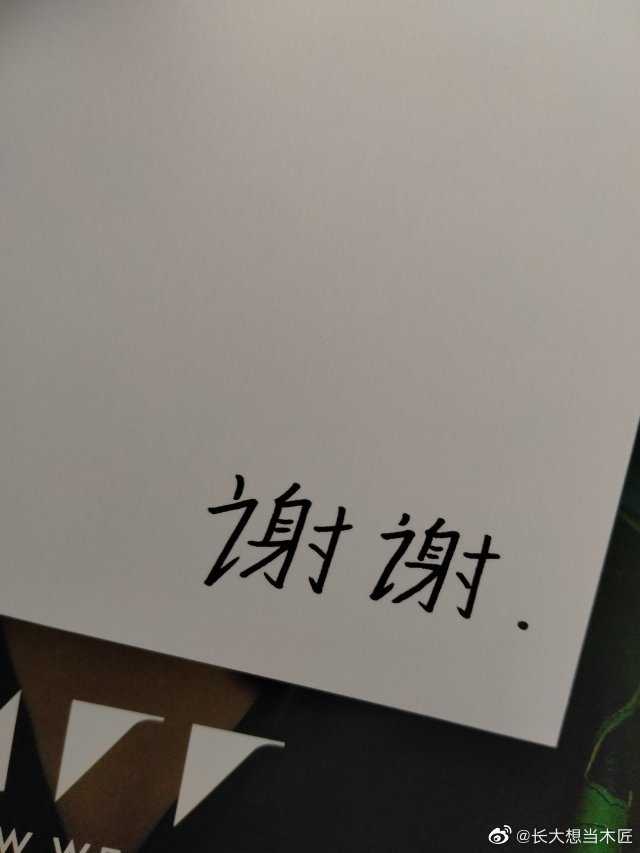 谢谢.
W WE
@长大想当木匠